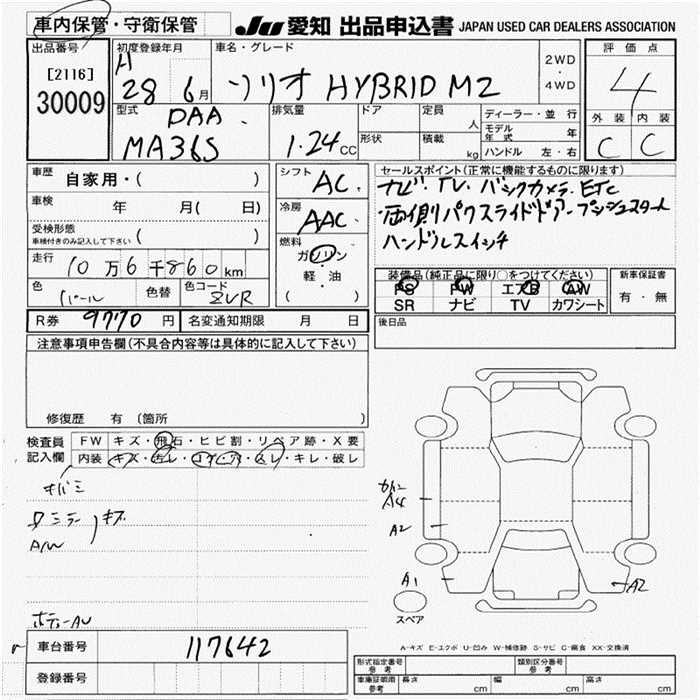 車内保管・守衛保管 JU 愛知 出品申込書 JAPAN USED CAR DEALERS ASSOCIATION
出品番号 [2116] 30009
初度登録年月 H 28 6月
車名・グレード ソリオ HYBRID MZ
2WD ・ 4WD
評価点 4
外装 内装
C C
型式 DAA MA36S
排気量 1.24 CC
ドア 定員 人
形状 積載 kg
ディーラー・並行
モデル年式 年
ハンドル 左・右
車歴 自家用・( )
車検 年 月( 日)
受検形態 車検付きのみ記入して下さい ( )
走行 10万6千860km
色 パール 色替 色コード ZVR
シフト AC
冷房 AAC
燃料 ガソリン・軽・油 ( )
セールスポイント(正常に機能するものに限ります)
ナビ・TV・バックカメラ・ETC
両側パワスライドドアー・プシュスタート
ハンドルスイッチ
装備品(純正品に限り○をつけてください)
PS PW エアB AW
SR ナビ TV カワシート
新車保証書 有・無
R券 9770円 名変通知期限 月 日
後日品
注意事項申告欄(不具合内容等は具体的に記入して下さい)
修復歴 有 (箇所 )
検査員記入欄
FW キズ・飛石・ヒビ割・リペア跡・X要
内装 キズ・汚レ・コゲ・穴・スレ・キレ・破レ
キバミ
ワミラーキズ
A/W
ボディーAU
A4
A2
A1
A2
スペア
A-キズ E-エクボ U-凹み W-補修跡 S-サビ C-腐食 XX-交換済
車台番号 117642
登録番号
形式指定番号 参考 類別区分番号 参考
車庫証明用 参考 長さ cm 幅 cm 高さ cm